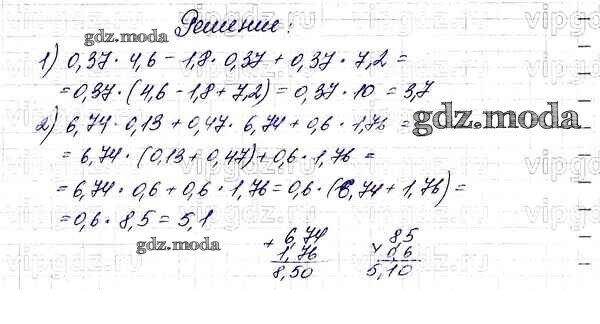 Решение:
gdz.moda
1) 0,37 · 4,6 − 1,8 · 0,37 + 0,37 · 7,2 =
= 0,37 · (4,6 − 1,8 + 7,2) = 0,37 · 10 = 3,7
gdz.moda
2) 6,74 · 0,13 + 0,47 · 6,74 + 0,6 · 1,76 =
= 6,74 · (0,13 + 0,47) + 0,6 · 1,76 =
= 6,74 · 0,6 + 0,6 · 1,76 = 0,6 · (6,74 + 1,76) =
= 0,6 · 8,5 = 5,1
gdz.moda
+ 6,74 × 85
1,76 0,6
8,50 5,10
gdz.moda